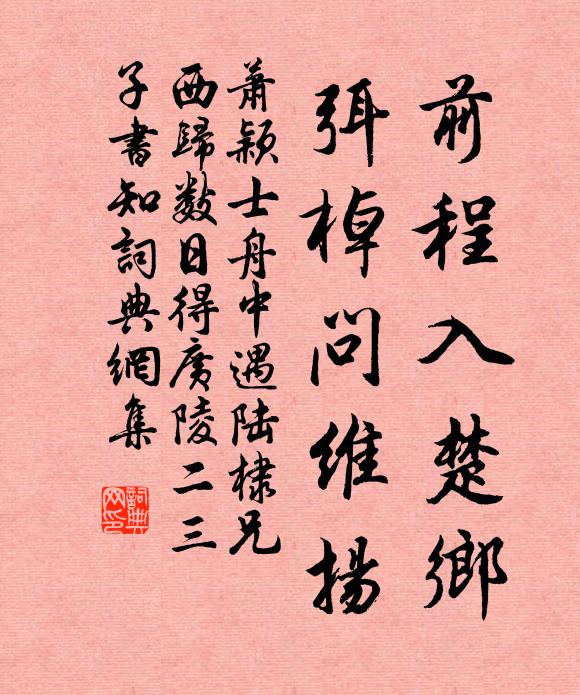 前程入楚鄉
弭棹問維揚
蕭潁士舟中遇陸棣兄
西歸數日得廣陵二三
子書知詞典網集
詞典網印